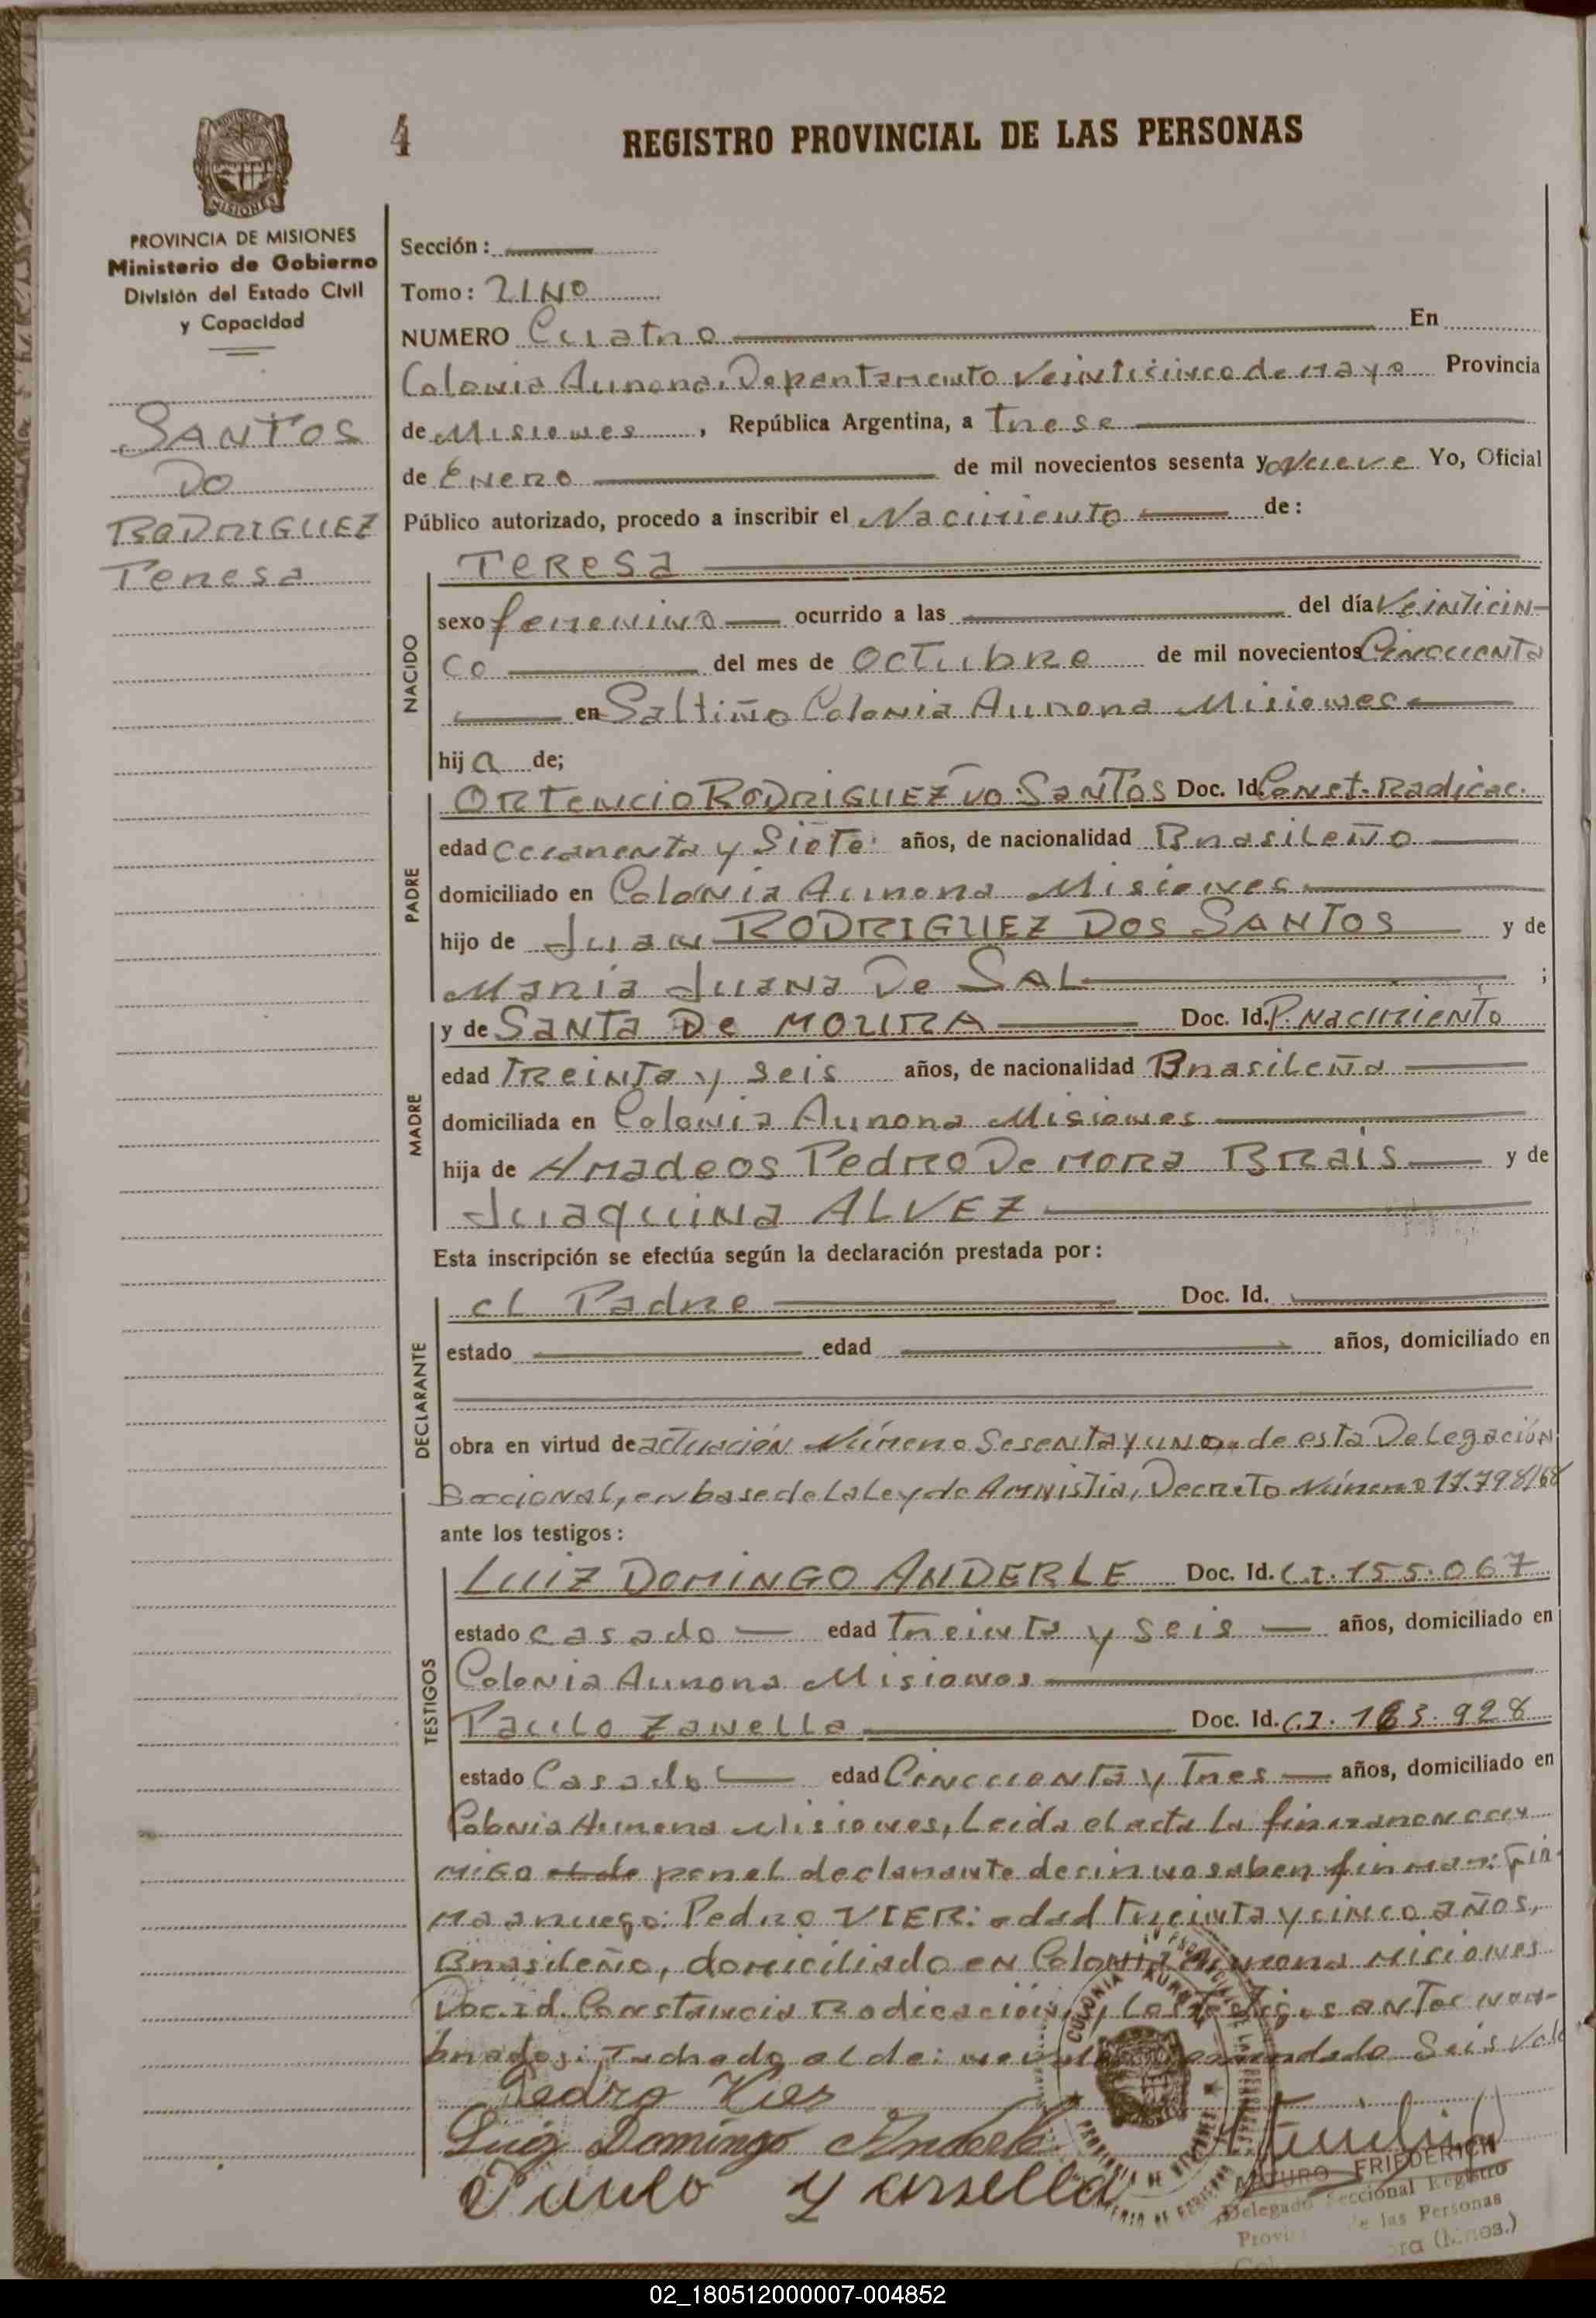 4
REGISTRO PROVINCIAL DE LAS PERSONAS
MISIONES
PROVINCIA DE MISIONES
Ministerio de Gobierno
División del Estado Civil
y Capacidad
SANTOS
DO
RODRIGUEZ
Teresa
Sección :
Tomo : UNO
NUMERO Cuatro En
Colonia Aurora, Departamento Veinticinco de mayo Provincia
de Misiones , República Argentina, a Trese
de Enero de mil novecientos sesenta y Nueve Yo, Oficial
Público autorizado, procedo a inscribir el Nacimiento de :
Teresa
NACIDO
sexo femenino ocurrido a las del día Veinticin-
co del mes de Octubre de mil novecientos Cincuenta
en Saltiño Colonia Aurora Misiones
hij a de;
PADRE
ORTENCIO RODRIGUEZ DO SANTOS Doc. Id. Const. Radicac.
edad cuarenta y Siete años, de nacionalidad Brasileño
domiciliado en Colonia Aurora Misiones
hijo de Juan RODRIGUEZ DOS SANTOS y de
Maria Juana De SAL ;
MADRE
y de Santa De MOURA Doc. Id. P. Nacimiento
edad Treinta y seis años, de nacionalidad Brasileña
domiciliada en Colonia Aurora Misiones
hija de Amadeos Pedro De mora Brais y de
Juaquina ALVEZ
Esta inscripción se efectúa según la declaración prestada por :
DECLARANTE
el Padre Doc. Id.
estado edad años, domiciliado en
obra en virtud de actuación Número Sesenta y uno de esta Delegación
Seccional, en base de la Ley de Amnistia, Decreto Número 17.798/68
ante los testigos :
TESTIGOS
LUIZ DOMINGO ANDERLE Doc. Id. C.I. 155.067
estado casado edad Treinta y seis años, domiciliado en
Colonia Aurora Misiones
Paulo Zanella Doc. Id. C.I. 163.928
estado Casado edad Cincuenta y Tres años, domiciliado en
Colonia Aurora Misiones, Leida el acta la firmaron con
migo el de por el declarante decir no saber firmar: Fir
ma a ruego: Pedro VIER: edad Treinta y cinco años,
Brasileño, domiciliado en Colonia Aurora Misiones
Doc. Id. Constancia Radicación, y los testigos antes nom-
brados: Tachado el de: no vale enmendado Seis Vale
Pedro Vier
Luiz Domingo Anderle
Paulo Zanella
COLONIA AURORA
PROVINCIA DE MISIONES
ARTURO FRIEDERICH
Delegado Seccional Registro
de las Personas
02_180512000007-004852